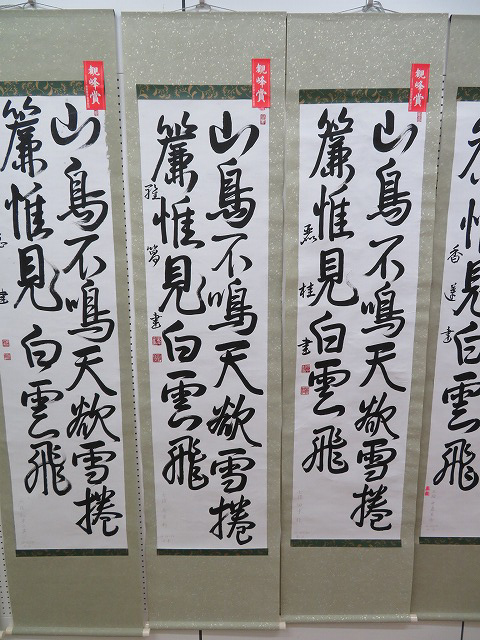 惟見白雲飛
香蓮書
観峰賞
山鳥不鳴天欲雪捲
簾惟見白雲飛
桂書
観峰賞
山鳥不鳴天欲雪捲
簾惟見白雲飛
観峰賞
山鳥不鳴天欲雪捲
簾惟見白雲飛